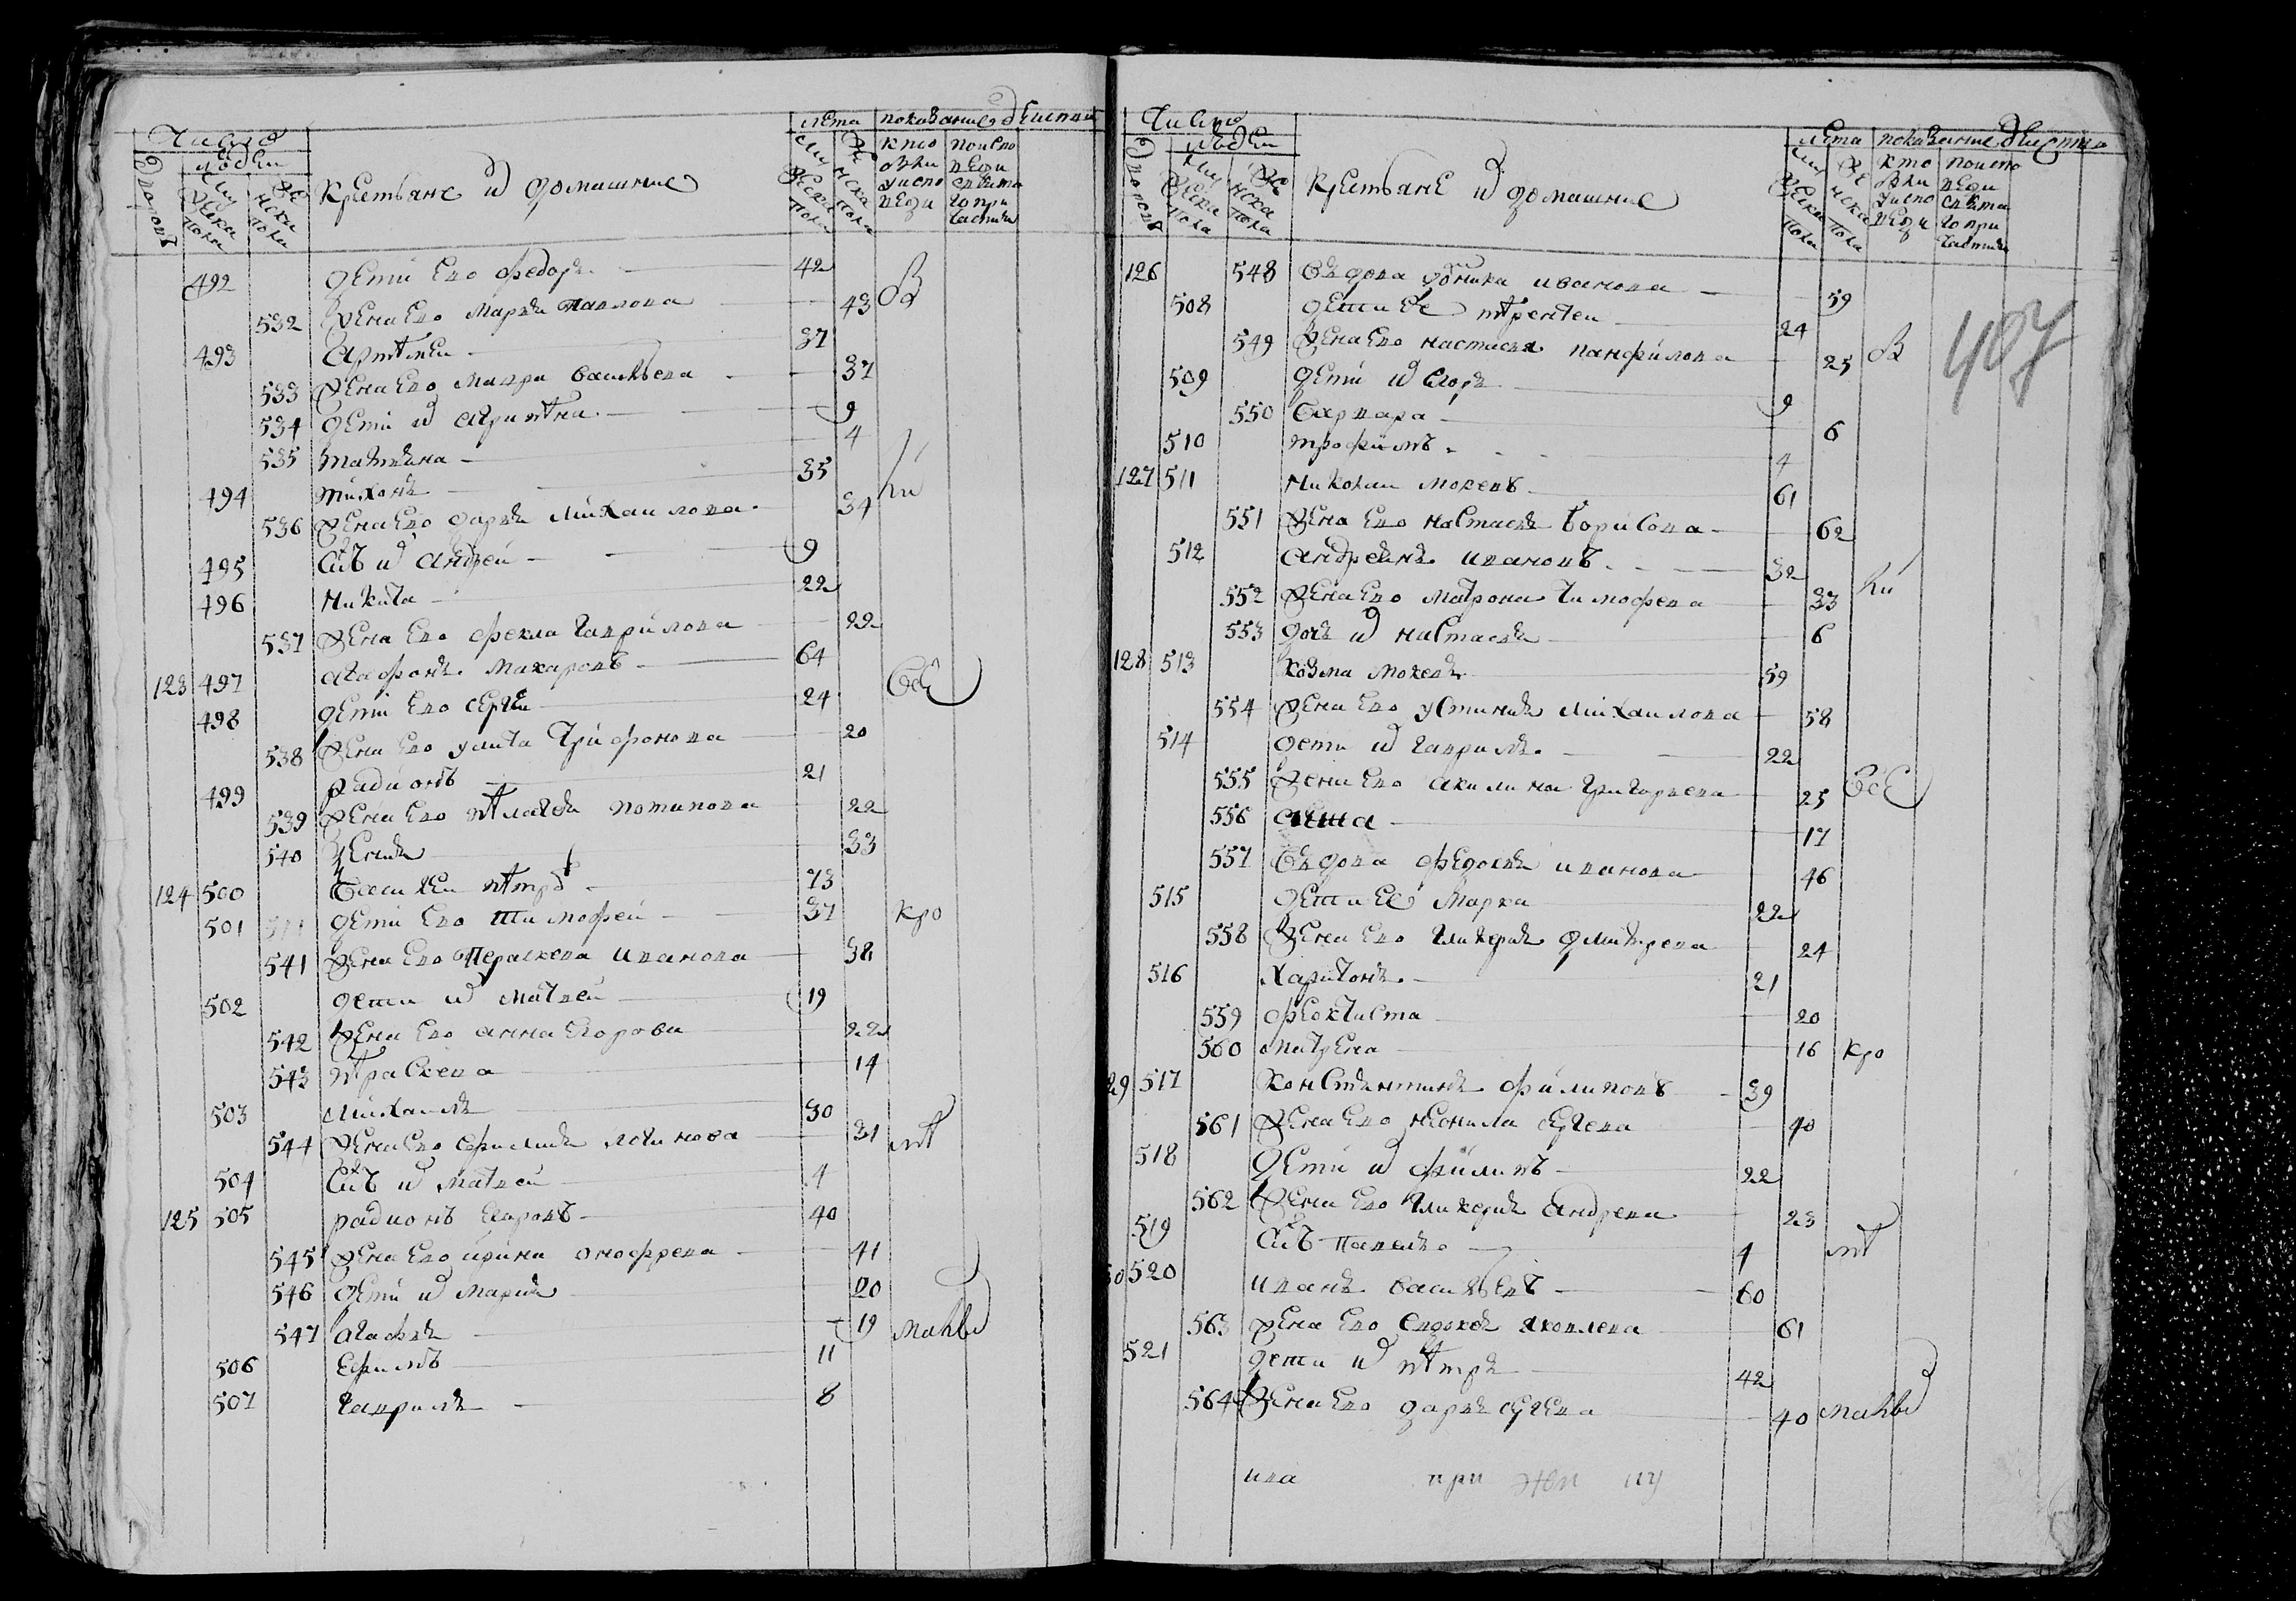 Число
людей
дворовъ
мужеска пола
женска пола
Крестьяне и домашние
лета
мужеска пола
женска пола
показание действа
кто были у исповеди
492 дети ево федоръ 42
532 жена ево марья павлова 43
493 артемеи 37
533 жена ево мавра васильева 37
534 дети и агрипена 9
535 татьяна 4
494 тихонъ 35
536 жена ево дарья михаилова 34
495 снъ и андреи 9
496 никита 22
537 жена ево фекла гаврилова 22
123 497 агафонъ макаровъ 64
498 дети ево сергеи 24
538 жена ево улита трифонова 20
499 радионъ 21
539 жена ево пелагея потапова 22
540 ксения 33
124 500 василеи петровъ 73
501 дети ево тимофеи 37 кро
541 жена ево перасхева иванова 38
502 дети и матвеи 19
542 жена ево анна егорова 22
543 прасхева 14
503 михаилъ 30
544 жена ево ефимия логинова 31
504 снъ и матвеи 4
125 505 радионъ егоровъ 40
545 жена ево ирина онофреева 41
546 дети и мария 20
547 агафья 19
506 ефимъ 11
507 гаврила 8
Число
людей
дворовъ
мужеска пола
женска пола
Крестьяне и домашние
лета
мужеска пола
женска пола
показание действа
кто были у исповеди
407
126 548 вдова домника иванова 59
508 дети ее терентеи 24
549 жена ево настасья панфилова 25
509 дети и егоръ 9
550 варвара 6
510 трофимъ 4
127 511 николаи мокеевъ 61
551 жена ево настасья борисова 62
512 андреянъ ивановъ 32
552 жена ево матрона тимофеева 33
553 дочь и настасья 6
128 513 козма мокеевъ 59
554 жена ево устинья михаилова 58
514 дети и гаврила 22
555 жена ево акилина григорьева 25
556 17
557 вдова федосья иванова 46
515 дети ее марка 22
558 жена ево гликерия дмитрева 24
516 харитонъ 21
559 феоктиста 20
560 матрена 16 кро
29 517 константинъ филиповъ 39
561 жена ево неонила сергева 40
518 дети и филипъ 22
562 жена ево гликерия андреева 23
519 снъ павелъ 4
520 иванъ васильевъ 60
563 жена ево евдокея яковлева 61
521 дети и петръ 42
564 жена ево дарья сергева 40
ива при